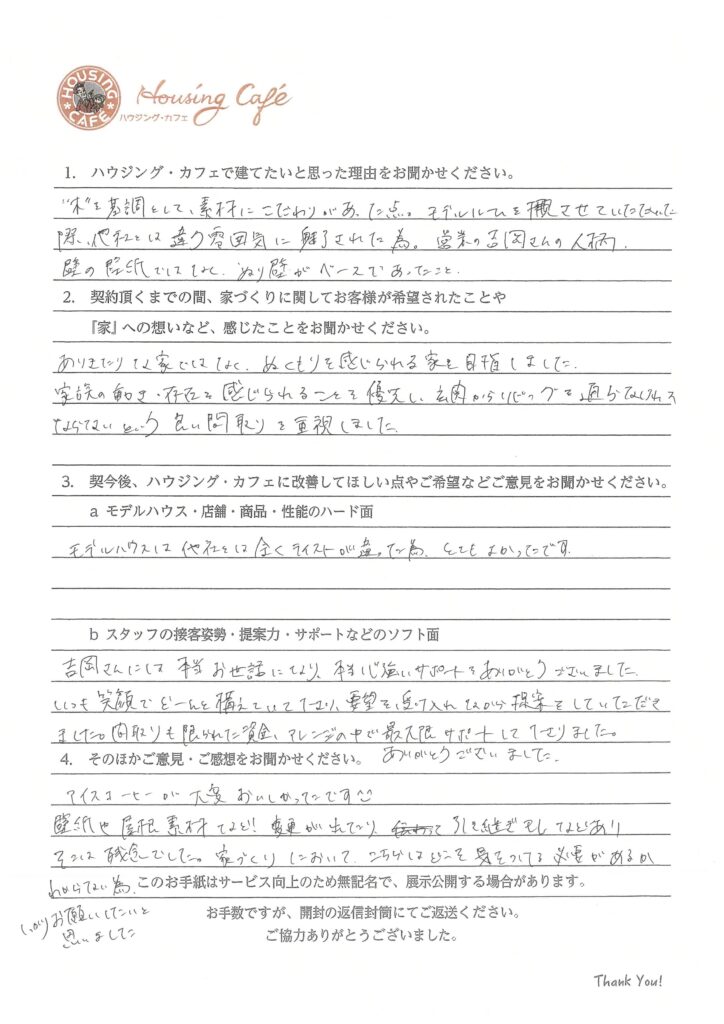 HOUSING CAFÉ
Housing Café
ハウジング・カフェ
1. ハウジング・カフェで建てたいと思った理由をお聞かせください。
"木"を基調として、素材にこだわりがあった点。モデルルームを拝観させていただいた
際、他社とは違う雰囲気に魅了された為。営業の吉岡さんの人柄.
壁の壁紙ではなく、ぬり壁がベースであったこと.
2. 契約頂くまでの間、家づくりに関してお客様が希望されたことや
『家』への想いなど、感じたことをお聞かせください。
ありきたりな家ではなく、ぬくもりを感じられる家を目指しました.
家族の動き・存在を感じられることを優先し、玄関からリビングを通らなければ
ならないという良い間取りを重視しました.
3. 契今後、ハウジング・カフェに改善してほしい点やご希望などご意見をお聞かせください。
a モデルハウス・店舗・商品・性能のハード面
モデルハウスは他社とは全くテイストが違った為、とてもよかったです.
b スタッフの接客姿勢・提案力・サポートなどのソフト面
吉岡さんには本当お世話になり、本当心強いサポートをありがとうございました.
いつも笑顔でどーんと構えていて下さり、要望を受け入れながら提案をしていただき
ました。間取りも限られた資金、アレンジの中で最大限サポートして下さりました。
4. そのほかご意見・ご感想をお聞かせください。 ありがとうございました.
アイスコーヒーが大変おいしかったです☺
壁紙や屋根素材など! 変更が出てたり 引き継ぎモレなどあり
そこは残念でした。家づくりにおいて、こちらはどこを気をつける必要があるか
わからない為、 このお手紙はサービス向上のため無記名で、展示公開する場合があります。
しっかりお願いしたいと
思いました
お手数ですが、開封の返信封筒にてご返送ください。
ご協力ありがとうございました。
Thank You!